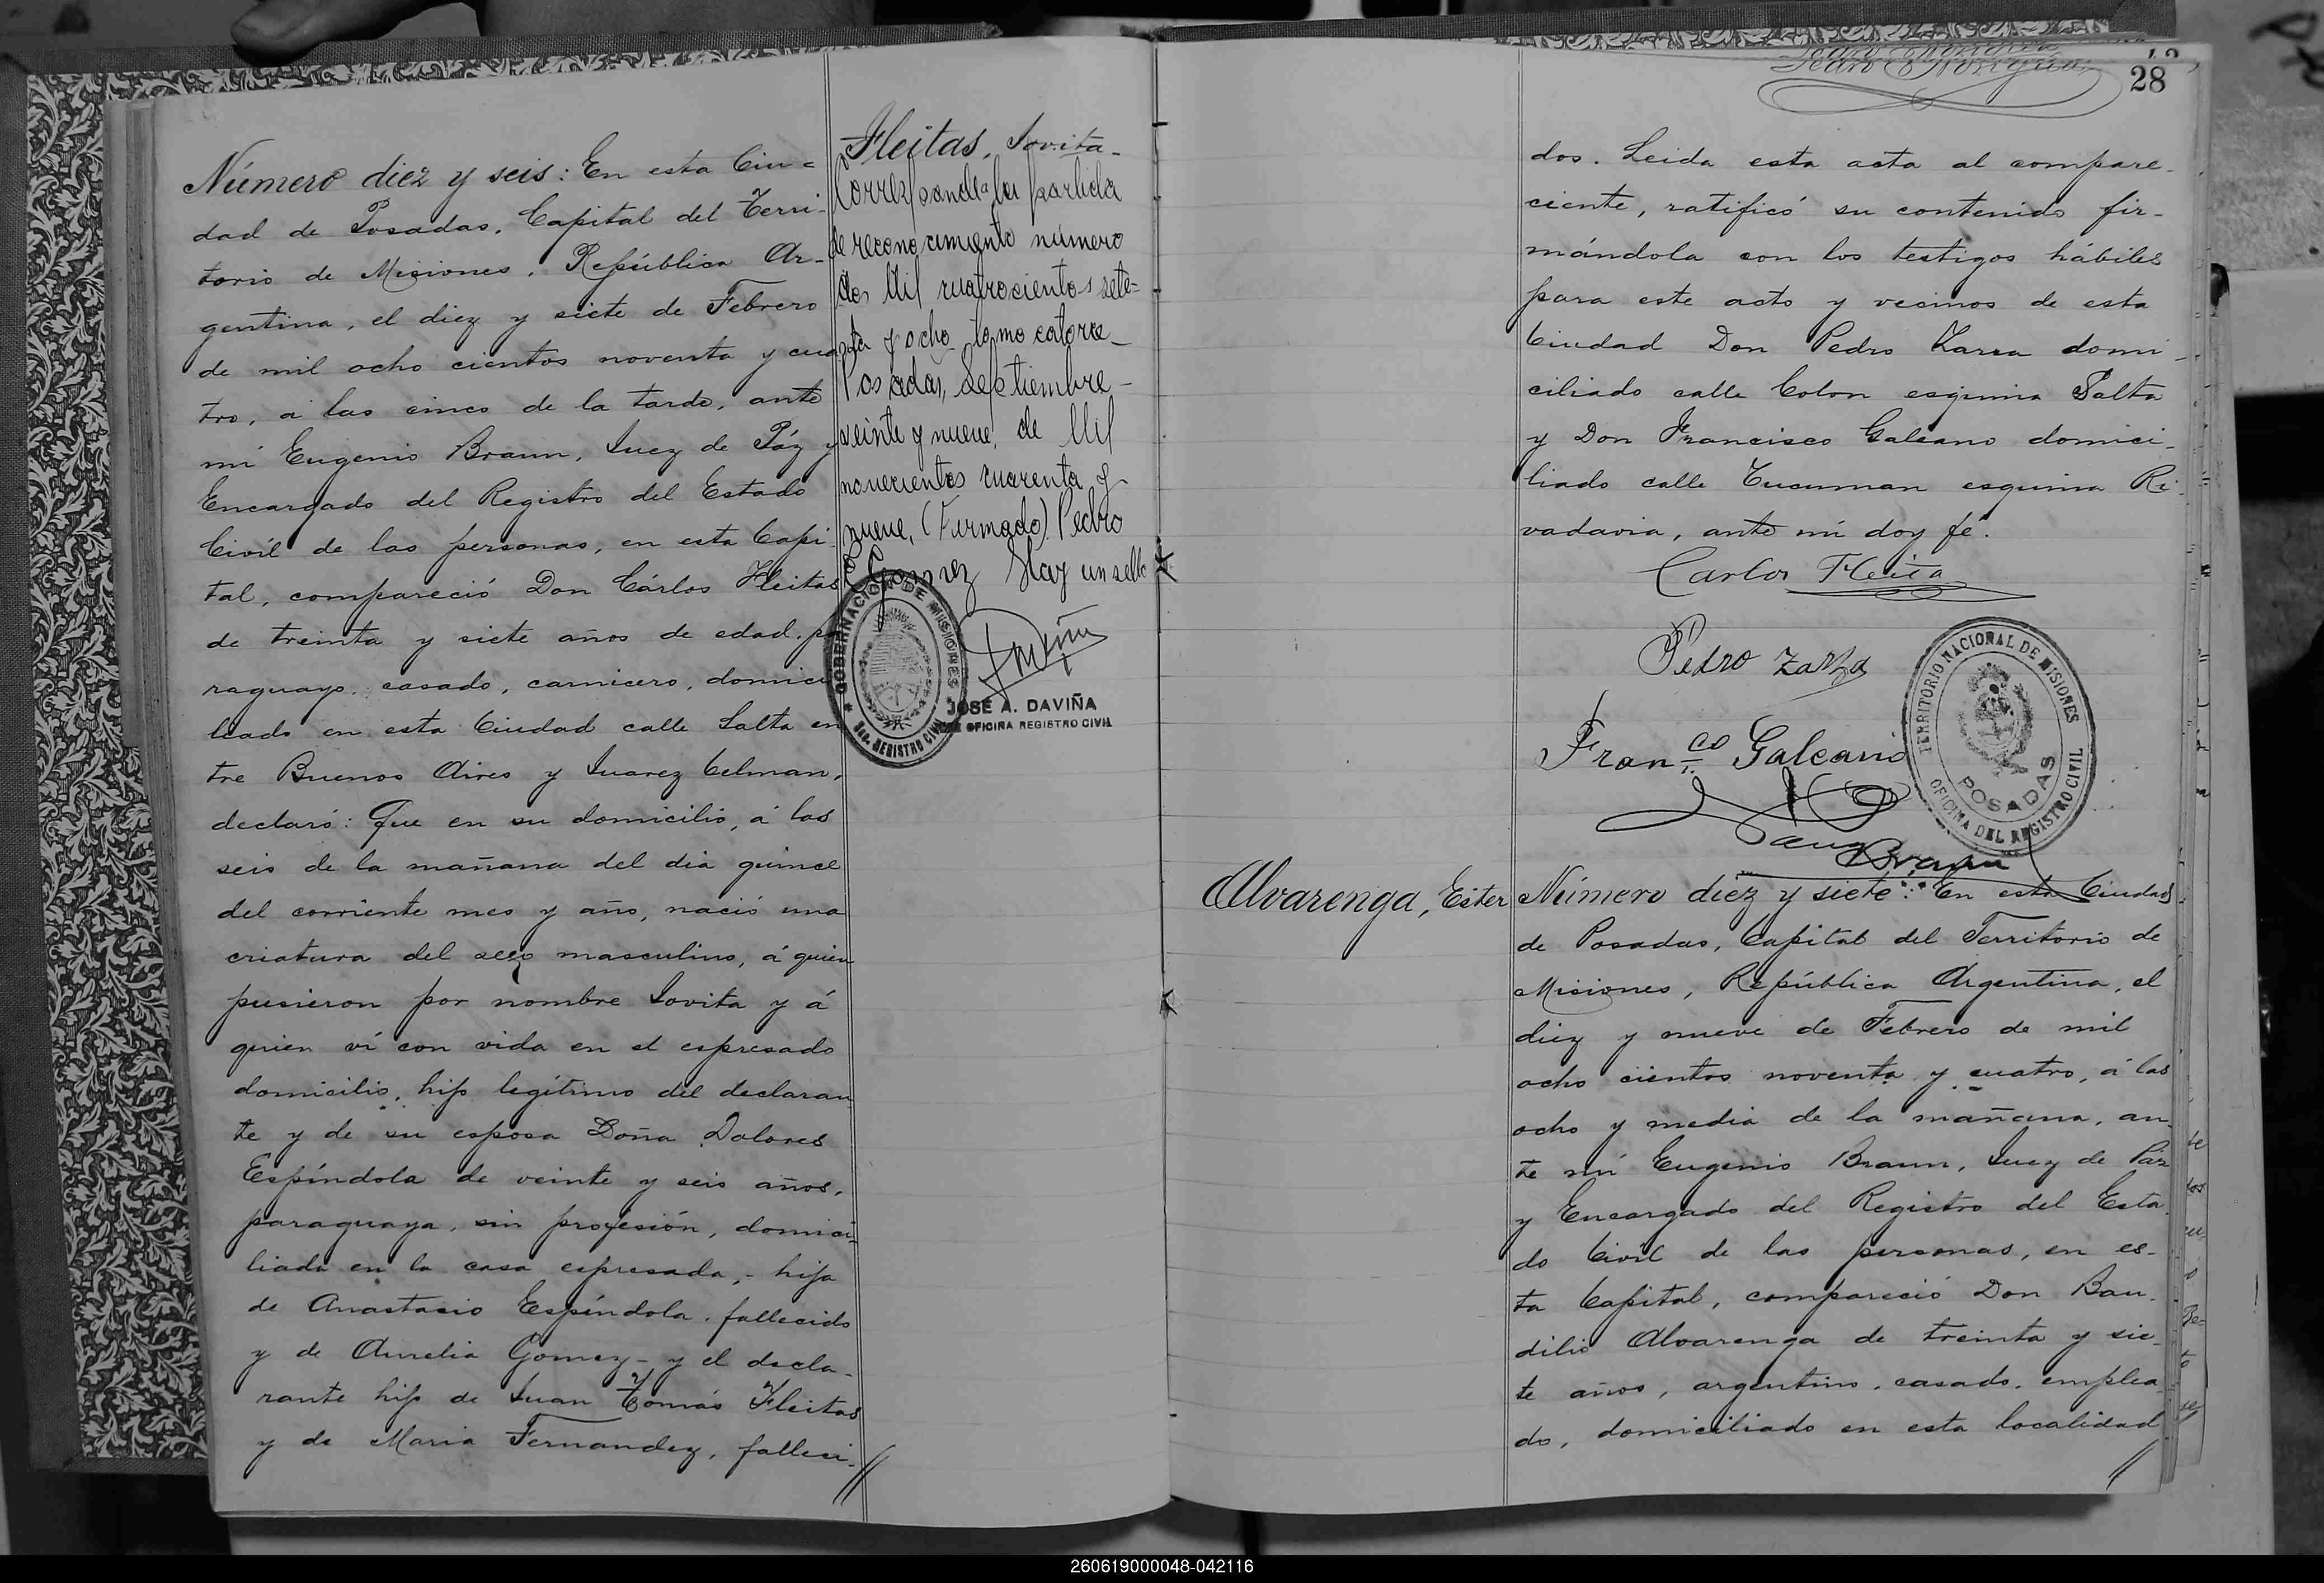 Número diez y seis: En esta Ciu=
dad de Posadas, Capital del Terri-
torio de Misiones, República Ar-
gentina, el diez y siete de Febrero
de mil ocho cientos noventa y cua
tro, á las cinco de la tarde, ante
mi Eugenio Braun, Juez de Páz y
Encargado del Registro del Estado
Civíl de las personas, en esta Capi-
tal, compareció Don Cárlos Fleitas
de treinta y siete años de edad, pa
raguayo, casado, carnicero, domici
liado en esta Ciudad calle Salta en
tre Buenos Aires y Juarez Celman,
declaró: Que en su domicilio, á las
seis de la mañana del dia quince
del corriente mes y año, nació una
criatura del sexo masculino, á quien
pusieron por nombre Jovita y á
quien ví con vida en el espresado
domicilio, hijo legítimo del declaran
te y de su esposa Doña Dolores
Espíndola de veinte y seis años,
paraguaya, sin profesión, domici-
liada en la casa espresada,- hija
de Anastacio Espíndola, fallecido
y de Aurelia Gomez- y el decla-
rante hijo de Juan Tomás Fleitas
y de Maria Fernandez, falleci-
Fleitas, Jovita-
Corresponde la partida
de reconocimiento número
dos Mil cuatrocientos sete-
nta y ocho tomo catorce-
Posadas, Septiembre-
veinte y nueve, de Mil
novecientos cuarenta y
nueve, (Firmado) Pedro
E Gomez Hay un sello
GOBERNACION DE MISIONES
REGISTRO CIVIL
JOSÉ A. DAVIÑA
OFICINA REGISTRO CIVIL
28
dos. Leida esta acta al compare-
ciente, ratificó su contenido fir-
mándola con los testigos hábiles
para este acto y vecinos de esta
Ciudad Don Pedro Zarza domi-
ciliado calle Colon esquina Salta
y Don Francisco Galeano domici-
liado calle Tucuman esquina Ri-
vadavia, ante mi doy fé.
Carlos Fleita
Pedro Zarza
Fran.co Galeano
TERRITORIO NACIONAL DE MISIONES
POSADAS
OFICINA DEL REGISTRO CIVIL
Braun
Alvarenga, Ester
Número diez y siete: En esta Ciudad
de Posadas, Capital del Territorio de
Misiones, República Argentina, el
diez y nueve de Febrero de mil
ocho cientos noventa y cuatro, á las
ocho y media de la mañana, an
te mi Eugenio Braun, Juez de Páz
y Encargado del Registro del Esta
do Civil de las personas, en es-
ta Capital, compareció Don Bau-
dilio Alvarenga de treinta y sie-
te años, argentino, casado, emplea
do, domiciliado en esta localidad
260619000048-042116